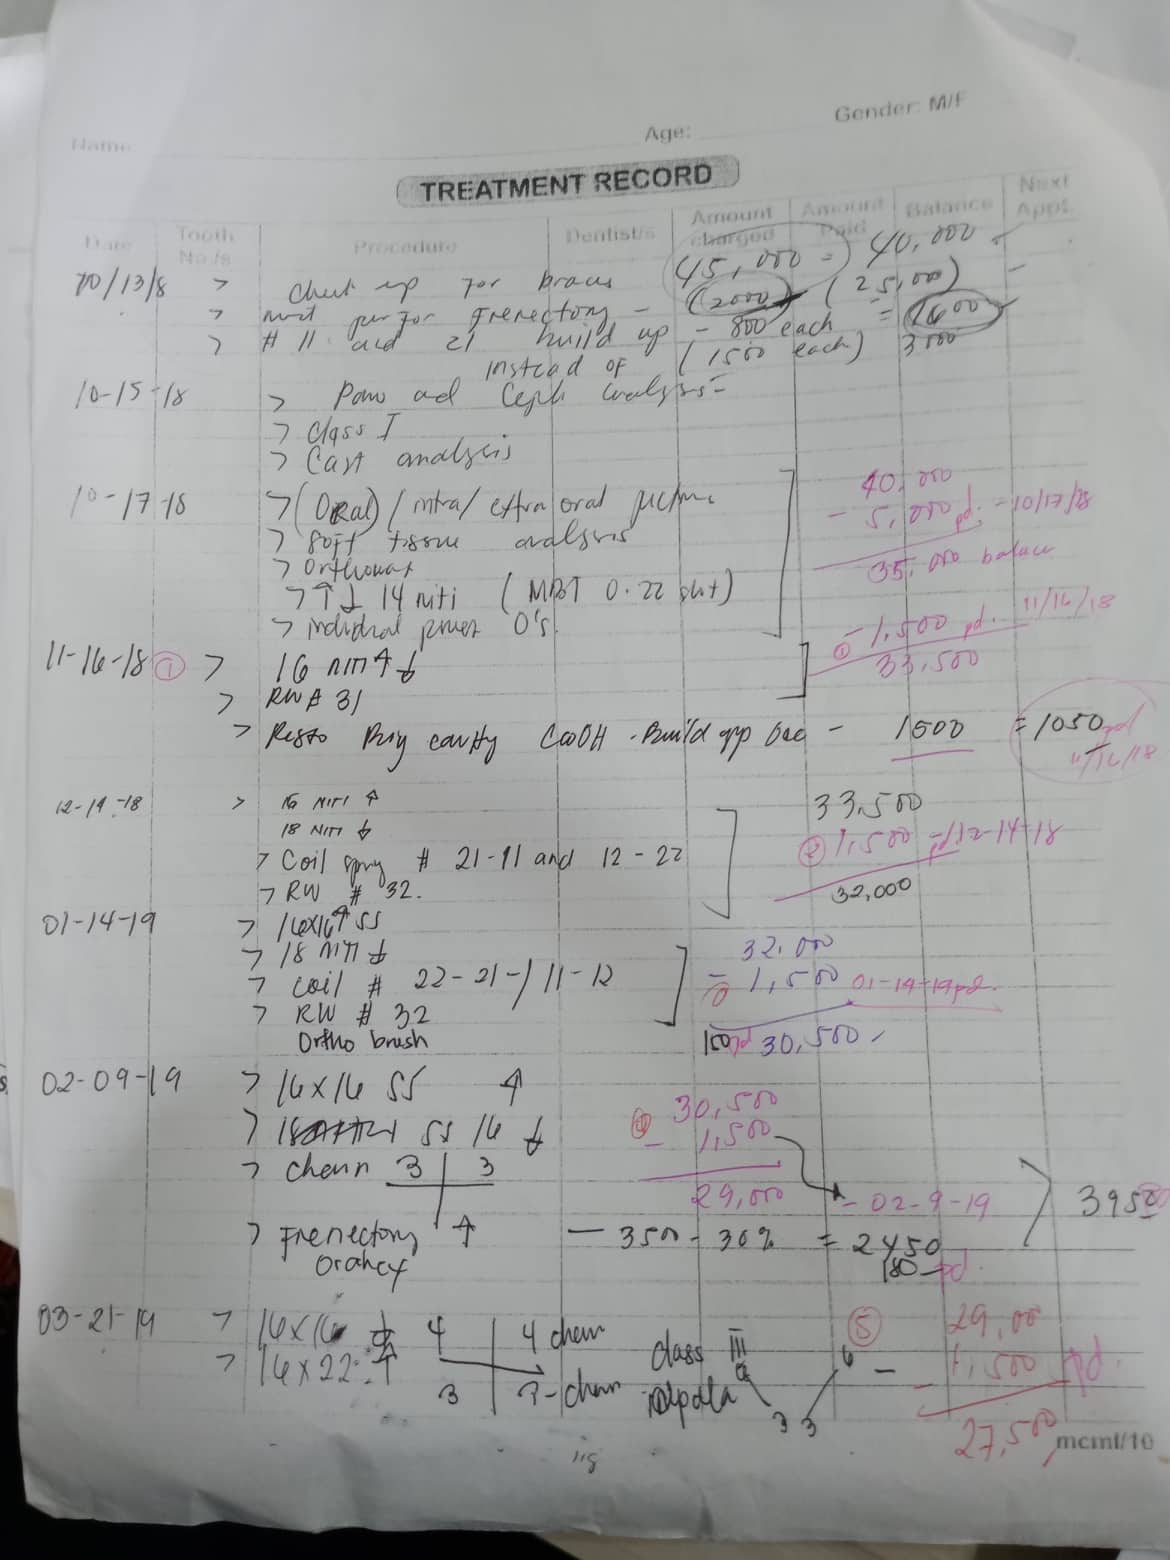 Name
Age:
Gender: M/F
TREATMENT RECORD
Date Tooth No./s Procedure Dentist/s Amount charged Amount Paid Balance Next Appt.
10/13/8 > Check up for braces 45,000 = 40,000
> for Frenectomy - (2000) (25,000)
> # 11 and 21 build up - 800 each =
instead of (1500 each) 3000
10-15-18 > Pano and Ceph analysis -
> Class I
> Cast analysis
10-17-18 > (Oral) / intra / extra oral picture
> soft tissue analysis
> Orthowax
> ↑↓ 14 niti (MBT 0.22 slot)
> individual power O's.
40,000
- 5,000 pd. - 10/17/18
35,000 balance
11-16-18 ① > 16 niti ↑↓
① - 1,500 pd. 11/16/18
33,500
> RW # 31
> Resto cavity CaOH - Build up - 1500 = 1050 pd
11/16/18
12-14-18 > 16 NITI ↑ 33,500
18 NITI ↓ ② 1,500 - pd 12-14-18
> Coil spring # 21-11 and 12-22
> RW # 32. 32,000
01-14-19 > 16x16 ↑ SS
> 18 NITI ↓ 32,000
> Coil # 22-21-/11-12 - 1,500 01-14-19 pd.
> RW # 32
Ortho brush 150 pd 30,500
02-09-19 > 16x16 SS ↑ 30,500
> SS 16 ↓ ④ - 1,500
> Chain 3 | 3 29,000 - 02-9-19 3950
> Frenectomy ↑ - 3500 - 30% = 2450
Orahex 180 pd.
03-21-19 > 16x16 ↓ 4 | 4 chain class III ⑤ 29,00
> 16x22 ↑ 3 | 3 - chain 6 - 1,500 pd.
3 3
27,500
mcml/10